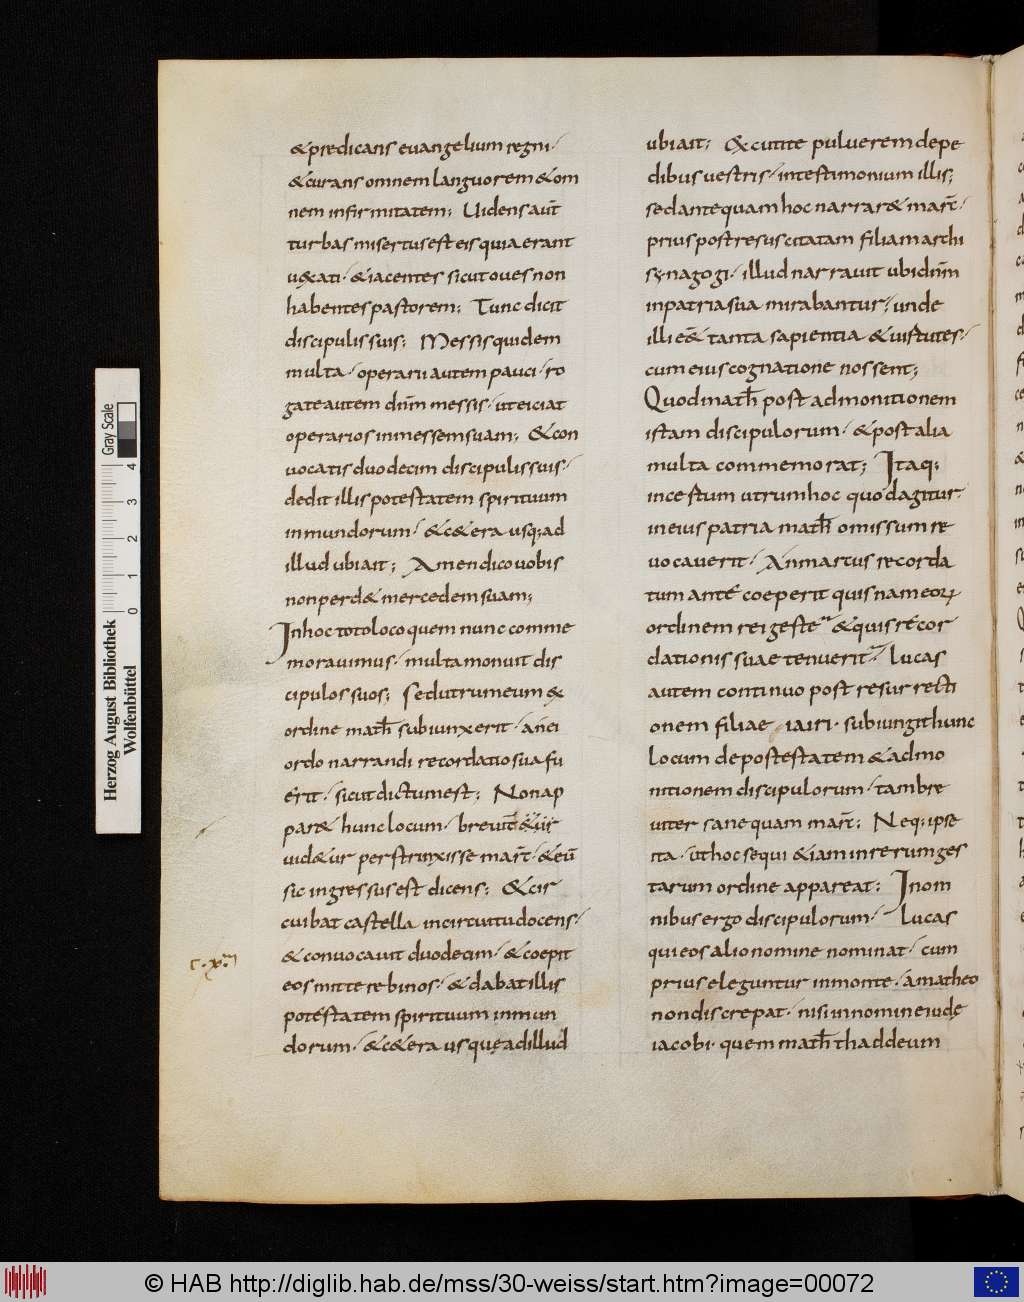 & predicans euangelium regni·
& curans omnem languorem & om
nem infirmitatem; Uidens aut̄
turbas misertus est eis quia erant
uexati· & iacentes sicut oues non
habentes pastorem; Tunc dicit
discipulis suis; Messis quidem
multa· operarii autem pauci· ro
gate autem dn̄m messis· ut eiciat
operarios in messem suam; & con
uocatis duodecim discipulis suis·
dedit illis potestatem spirituum
inmundorum· & c&era usq; ad
illud ubi ait; Amen dico uobis
non perd& mercedem suam;
In hoc toto loco quem nunc comme
morauimus· multa monuit dis
cipulos suos; Sed utrum eum &
ordine math̄ subiunxerit· an ei
ordo narrandi recordatio sua fu
erit· sicut dictum est; Non ap
par& hunc locum· breuit̄
uid&ur perstrinxisse marc̄· & eū
sic ingressus est dicens; & cir
cuibat castella in circuitu docens·
& conuocauit duodecim· & coepit
eos mittere binos· & dabat illis
potestatem spirituum inmun
dorum· & c&era usque ad illud
ubi ait; Excutite puluerem de pe
dibus uestris· in testimonium illis;
sed antequam hoc narrar& marc̄·
prius post resuscitatam filiam archi
synagogi· illud narrauit ubi dn̄m
in patria sua mirabantur· unde
illi eē& tanta sapientia & uirtutes·
cum eius cognatione nossent;
Quod math̄ post admonitionem
istam discipulorum· & post alia
multa commemorat; Itaq;
incestum utrum hoc quod agitur
in eius patria math̄ omissum re
uocauerit· An marcus recorda
tum ante coeperit quis nam eoꝝ
ordinem rei geste & quis recor
dationis suae tenuerit; Lucas
autem continuo post resurrecti
onem filiae iairi· subiungit hunc
locum de potestatem & admo
nitionem discipulorum· tam bre
uiter sane quam marc̄; Neq; ipse
ita· ut hoc sequi &iam in rerum ges
tarum ordine appareat; In om
nibus ergo discipulorum· Lucas
qui eos alio nomine nominat· cum
prius eleguntur in monte· a matheo
non discrepat· nisi in nomine iude
iacobi· quem math̄ thaddeum
Herzog August Bibliothek
Wolfenbüttel
0 1 2 3 4
Gray Scale
© HAB http://diglib.hab.de/mss/30-weiss/start.htm?image=00072